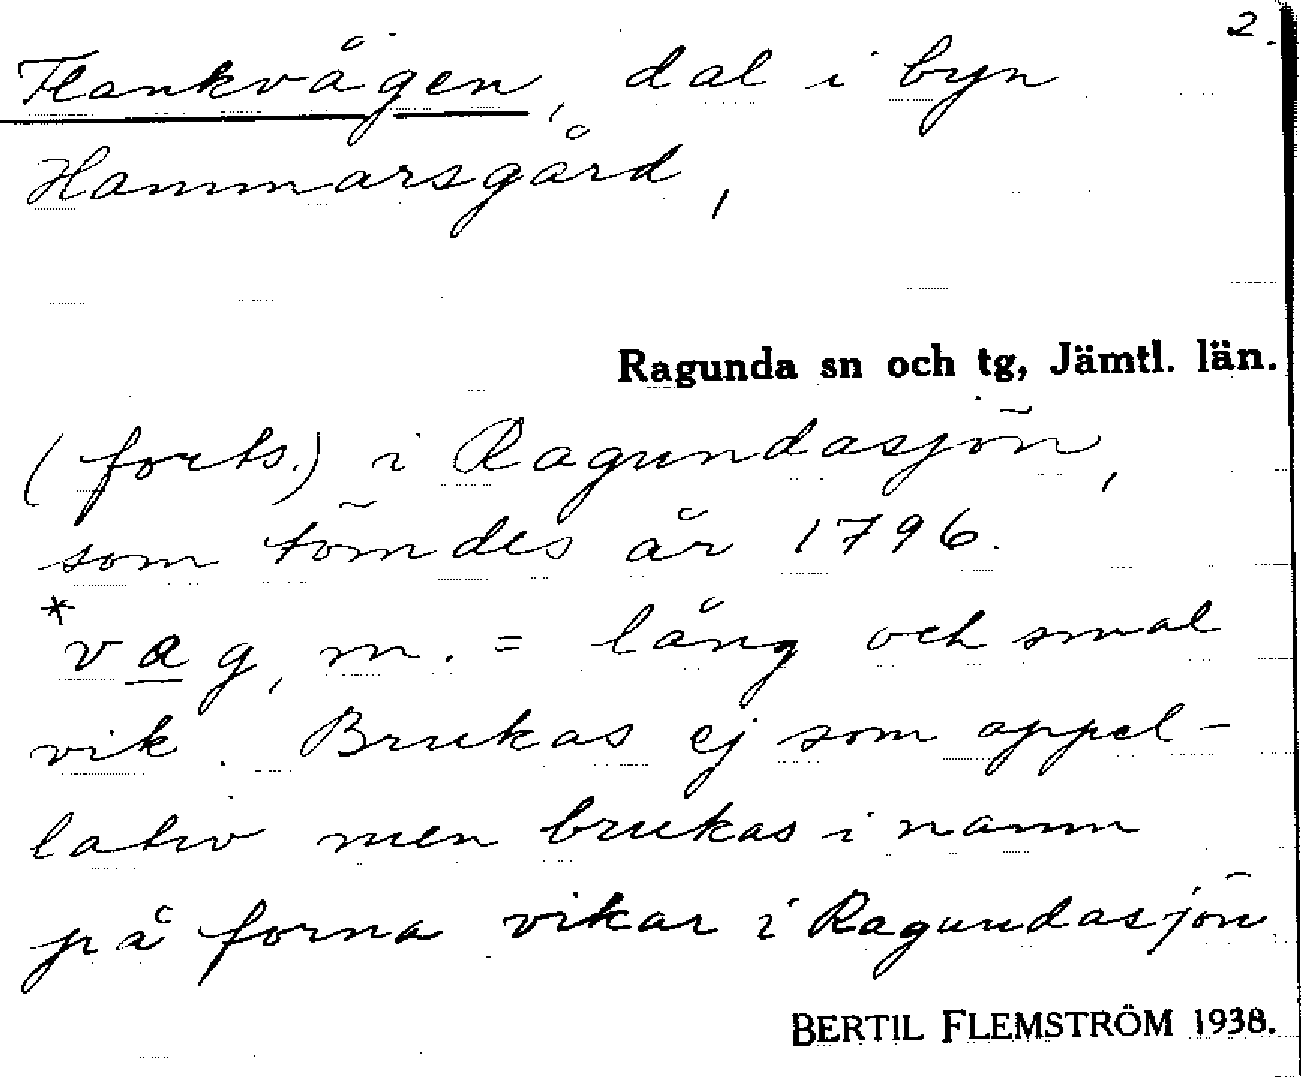 2.
Flankvågen, dal i byn
Hammarsgård,
Ragunda sn och tg, Jämtl. län.
(forts.) i Ragundasjön,
som tömdes år 1796.
*vag, m. = lång och smal
vik. Brukas ej som appel-
lativ men brukas i namn
på forna vikar i Ragundasjön
BERTIL FLEMSTRÖM 1938.